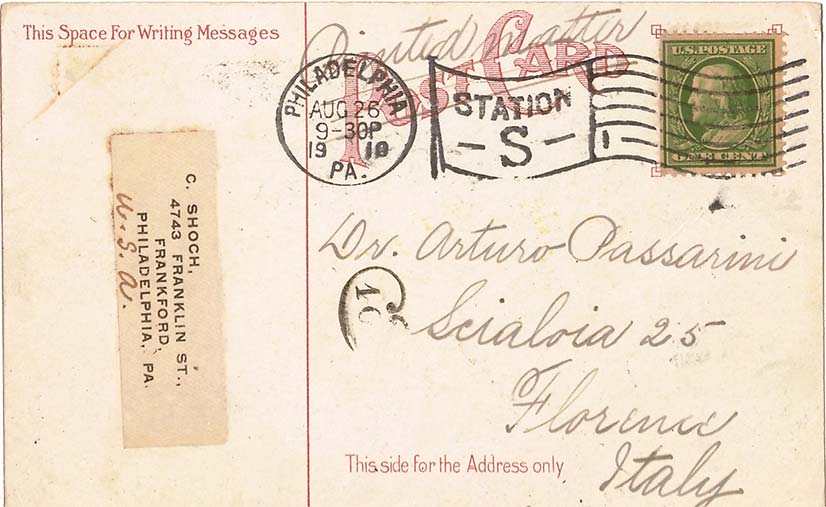 This Space For Writing Messages
Printed matter
POST CARD
PHILADELPHIA
AUG 26
9-30P
19 10
PA.
STATION
- S -
1
U.S. POSTAGE
ONE CENT
C. SHOCH,
4743 FRANKLIN ST.,
FRANKFORD,
PHILADELPHIA, PA.
U. S. A.
Dr. Arturo Passarini
Scialoia 25
Florence
Italy
10
This side for the Address only